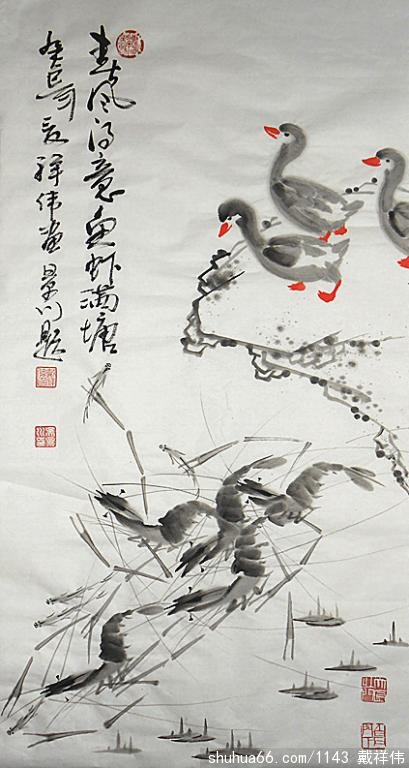 春风得意鱼虾满塘
祥伟画 题
shuhua66.com/1143 戴祥伟